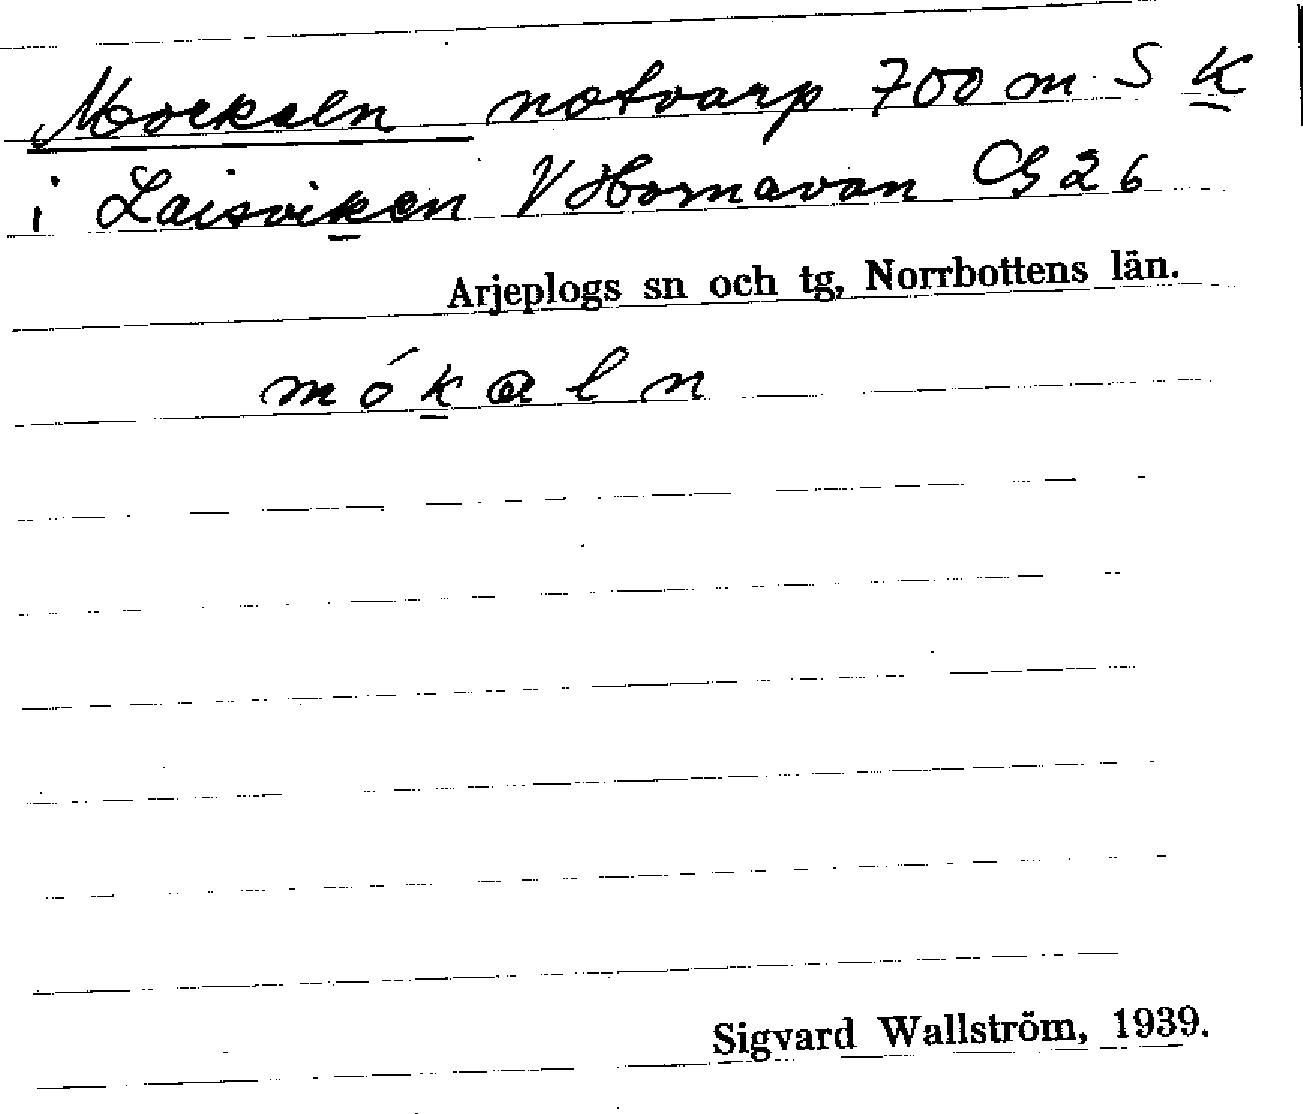 Mockaln notvarp 700 m S K
i Laisviken V Hornavan C326
Arjeplogs sn och tg, Norrbottens län.
mókaln
Sigvard Wallström, 1939.